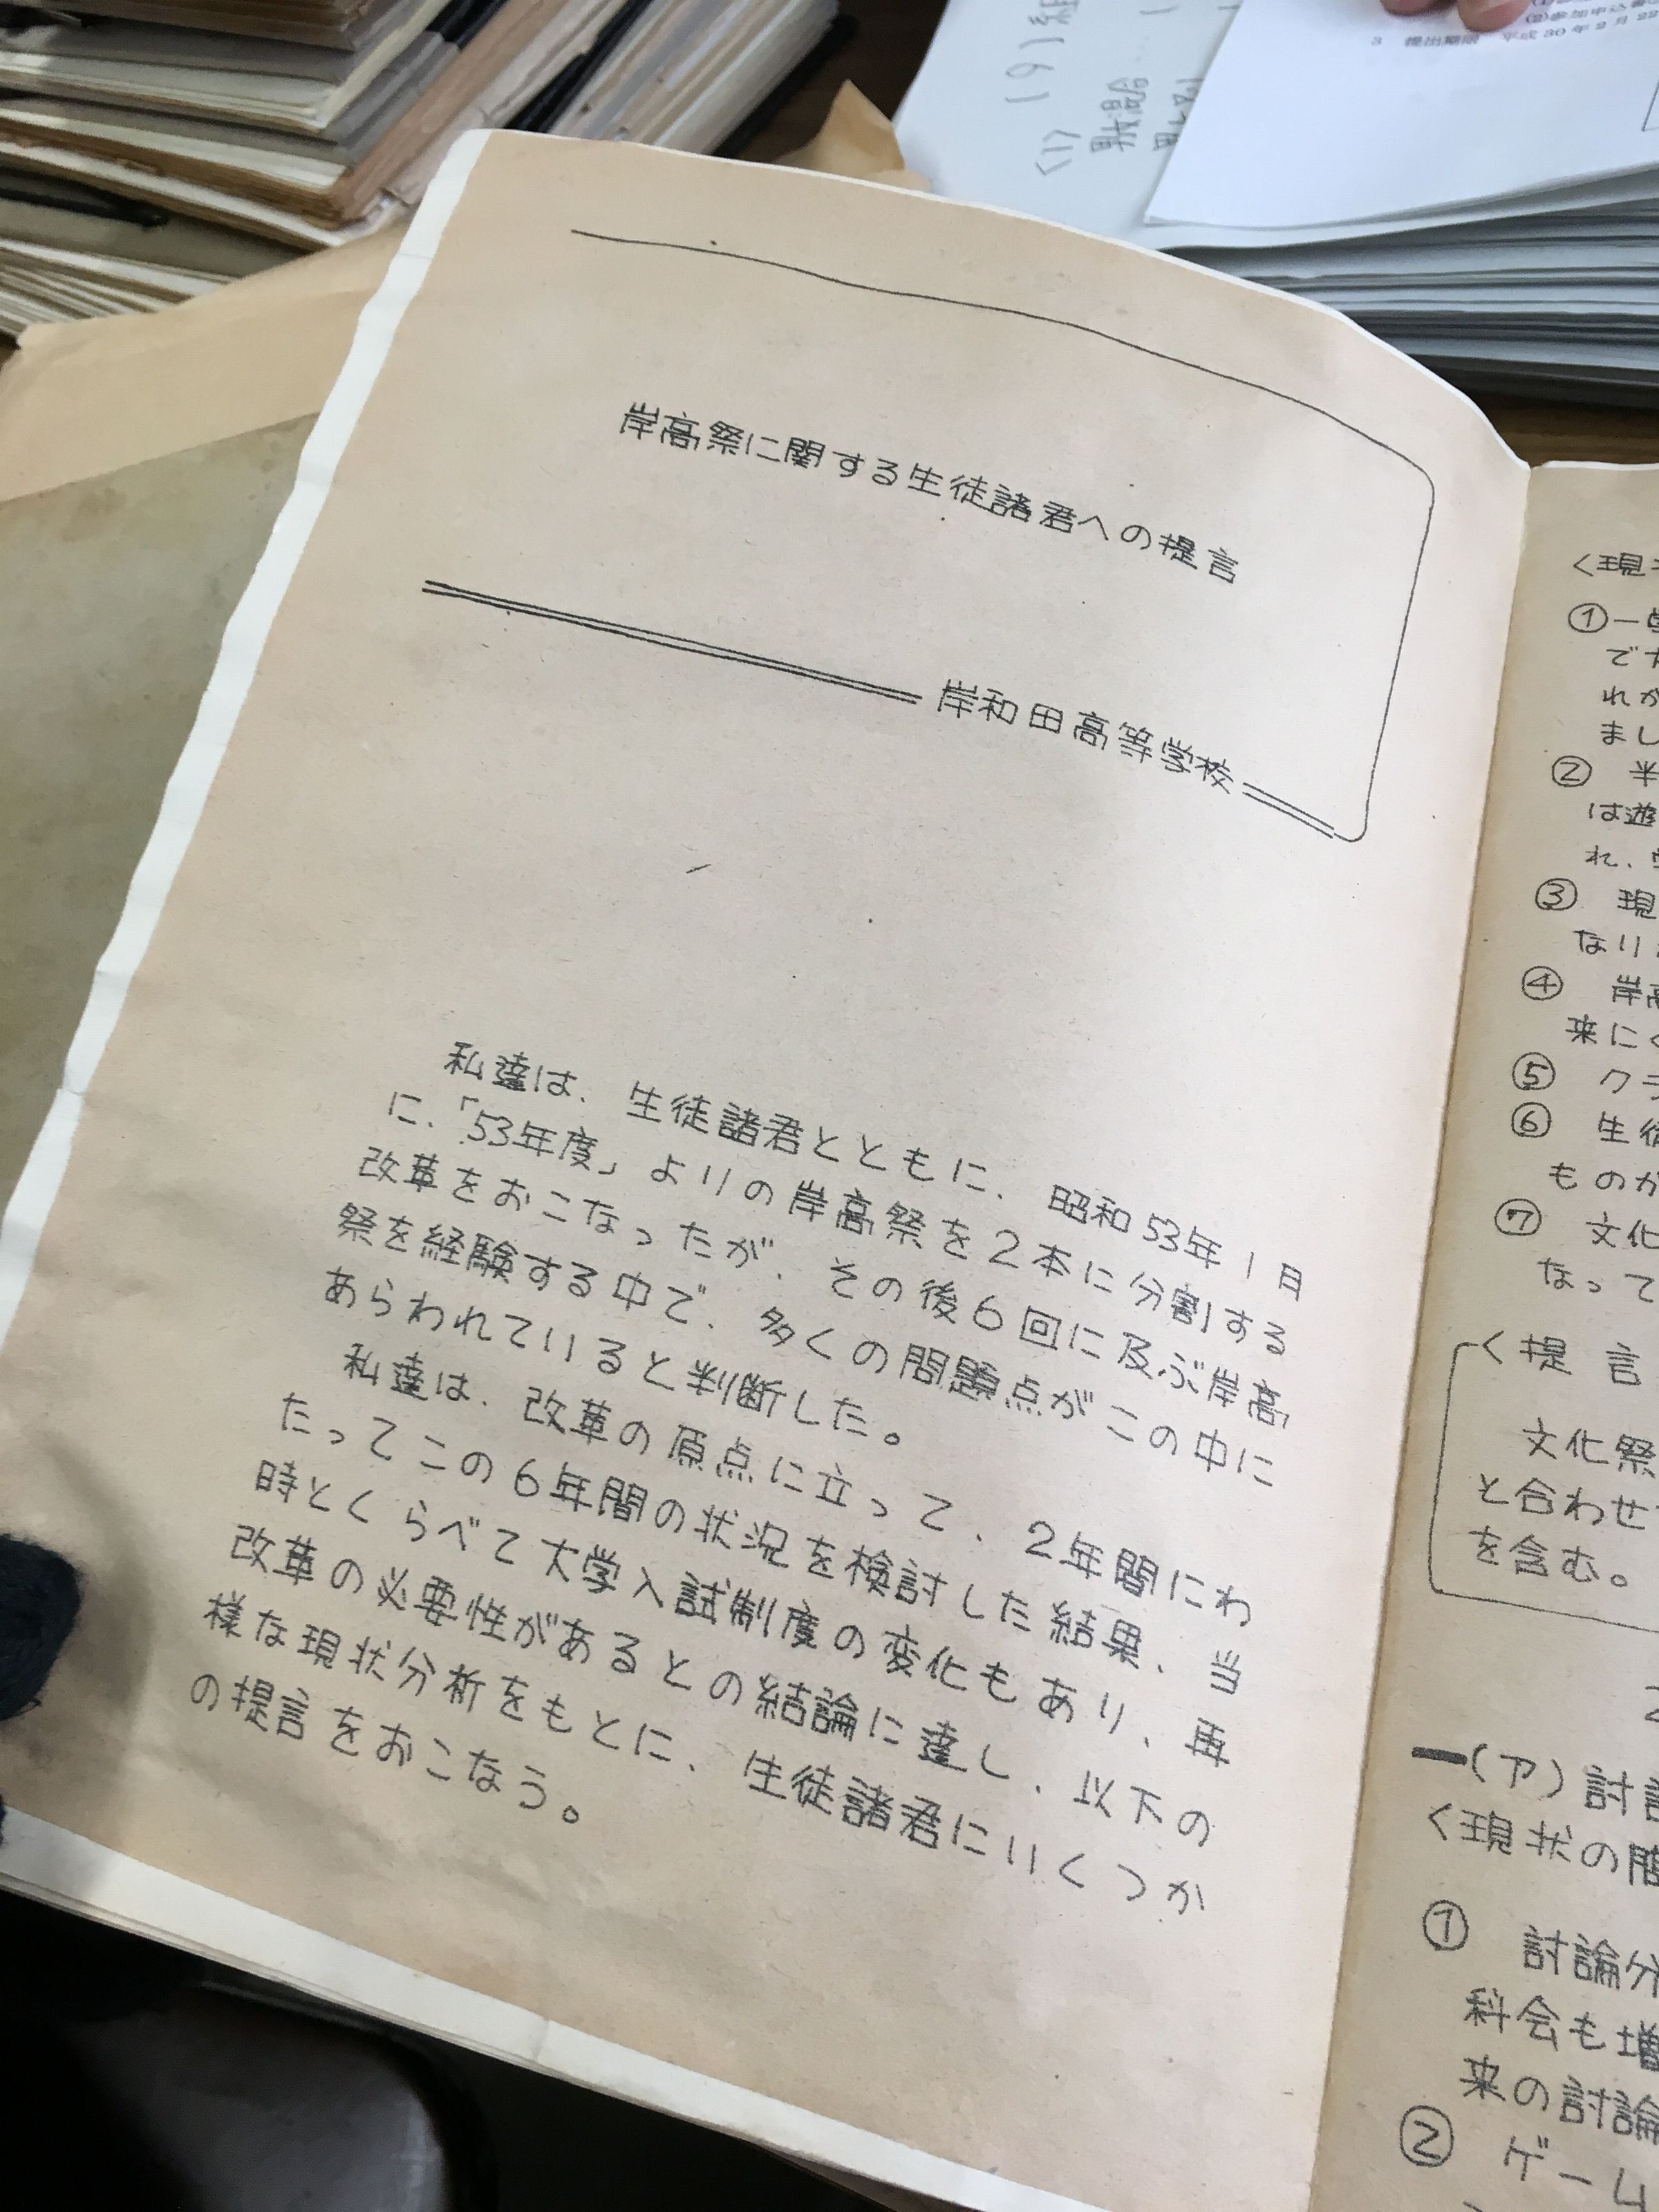 岸高祭に関する生徒諸君への提言
岸和田高等学校
私達は、生徒諸君とともに、昭和53年1月
に、「53年度」よりの岸高祭を2本に分割する
改革をおこなったが、その後6回に及ぶ岸高
祭を経験する中で、多くの問題点がこの中に
あらわれていると判断した。
私達は、改革の原点に立って、2年間にわ
たってこの6年間の状況を検討した結果、当
時とくらべて大学入試制度の変化もあり、再
改革の必要性があるとの結論に達し、以下の
様な現状分析をもとに、生徒諸君にいくつか
の提言をおこなう。
<現
①一
です
れが
まし
② 半
は遊
れ、
③ 現
なり
④ 岸高
来にく
⑤ クラ
⑥ 生徒
ものが
⑦ 文化
なって
<提言
文化祭
と合わせ
を含む。
(ア)討
<現状の問
① 討論分
科会も増
来の討論
② ゲーム
3 提出期限 平成30年2月22